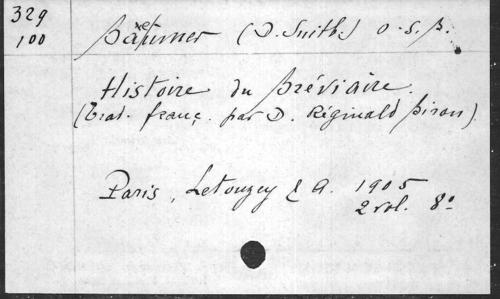 329
100
Bäumer (D. Suitb.) O.S.B.
Histoire du Bréviaire.
(Trad. franç. par D. Réginald Biron).
Paris, Letouzey & A. 1905
2 vol. 8°